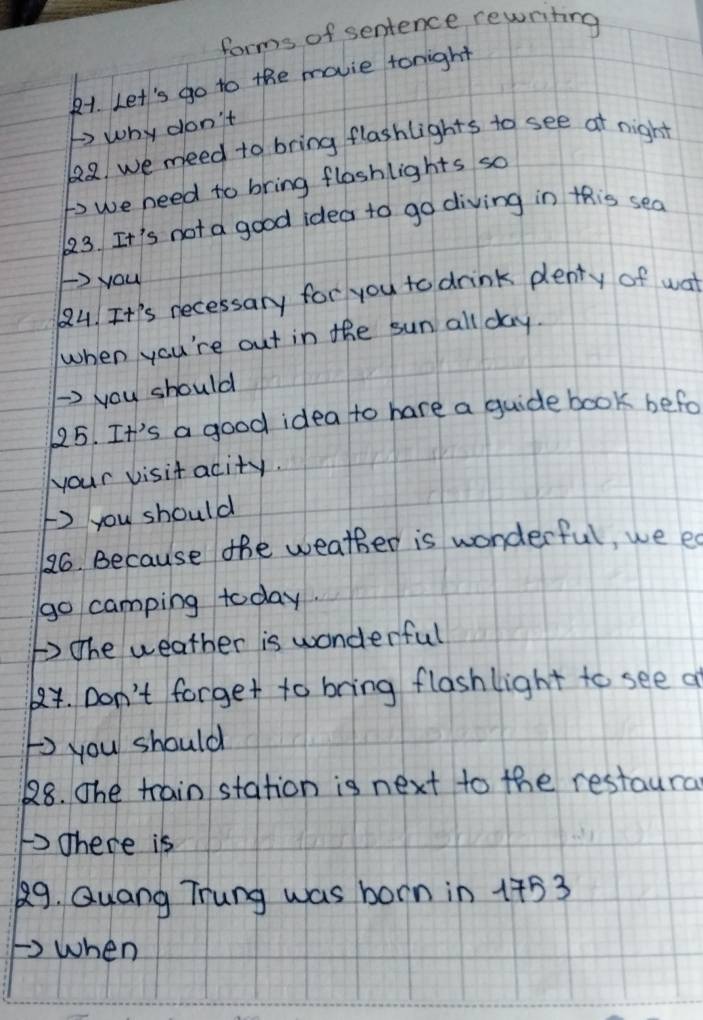 forms of sentence rewriting
21. Let's go to the movie tonight
→ why don't
22. we meed to bring flashlights to see at night
→ we need to bring flashlights so
23. It's not a good idea to go diving in this sea
→ you
24. It's necessary for you to drink plenty of wat
when you're out in the sun all day.
→ you should
25. It's a good idea to have a guide book befo
your visit acity.
→ you should
26. Because the weather is wonderful, we
go camping today.
→ The weather is wonderful
27. Don't forget to bring flashlight to see at
→ you should
28. The train station is next to the restaura
→ There is
29. Quang Trung was born in 1753
→ when